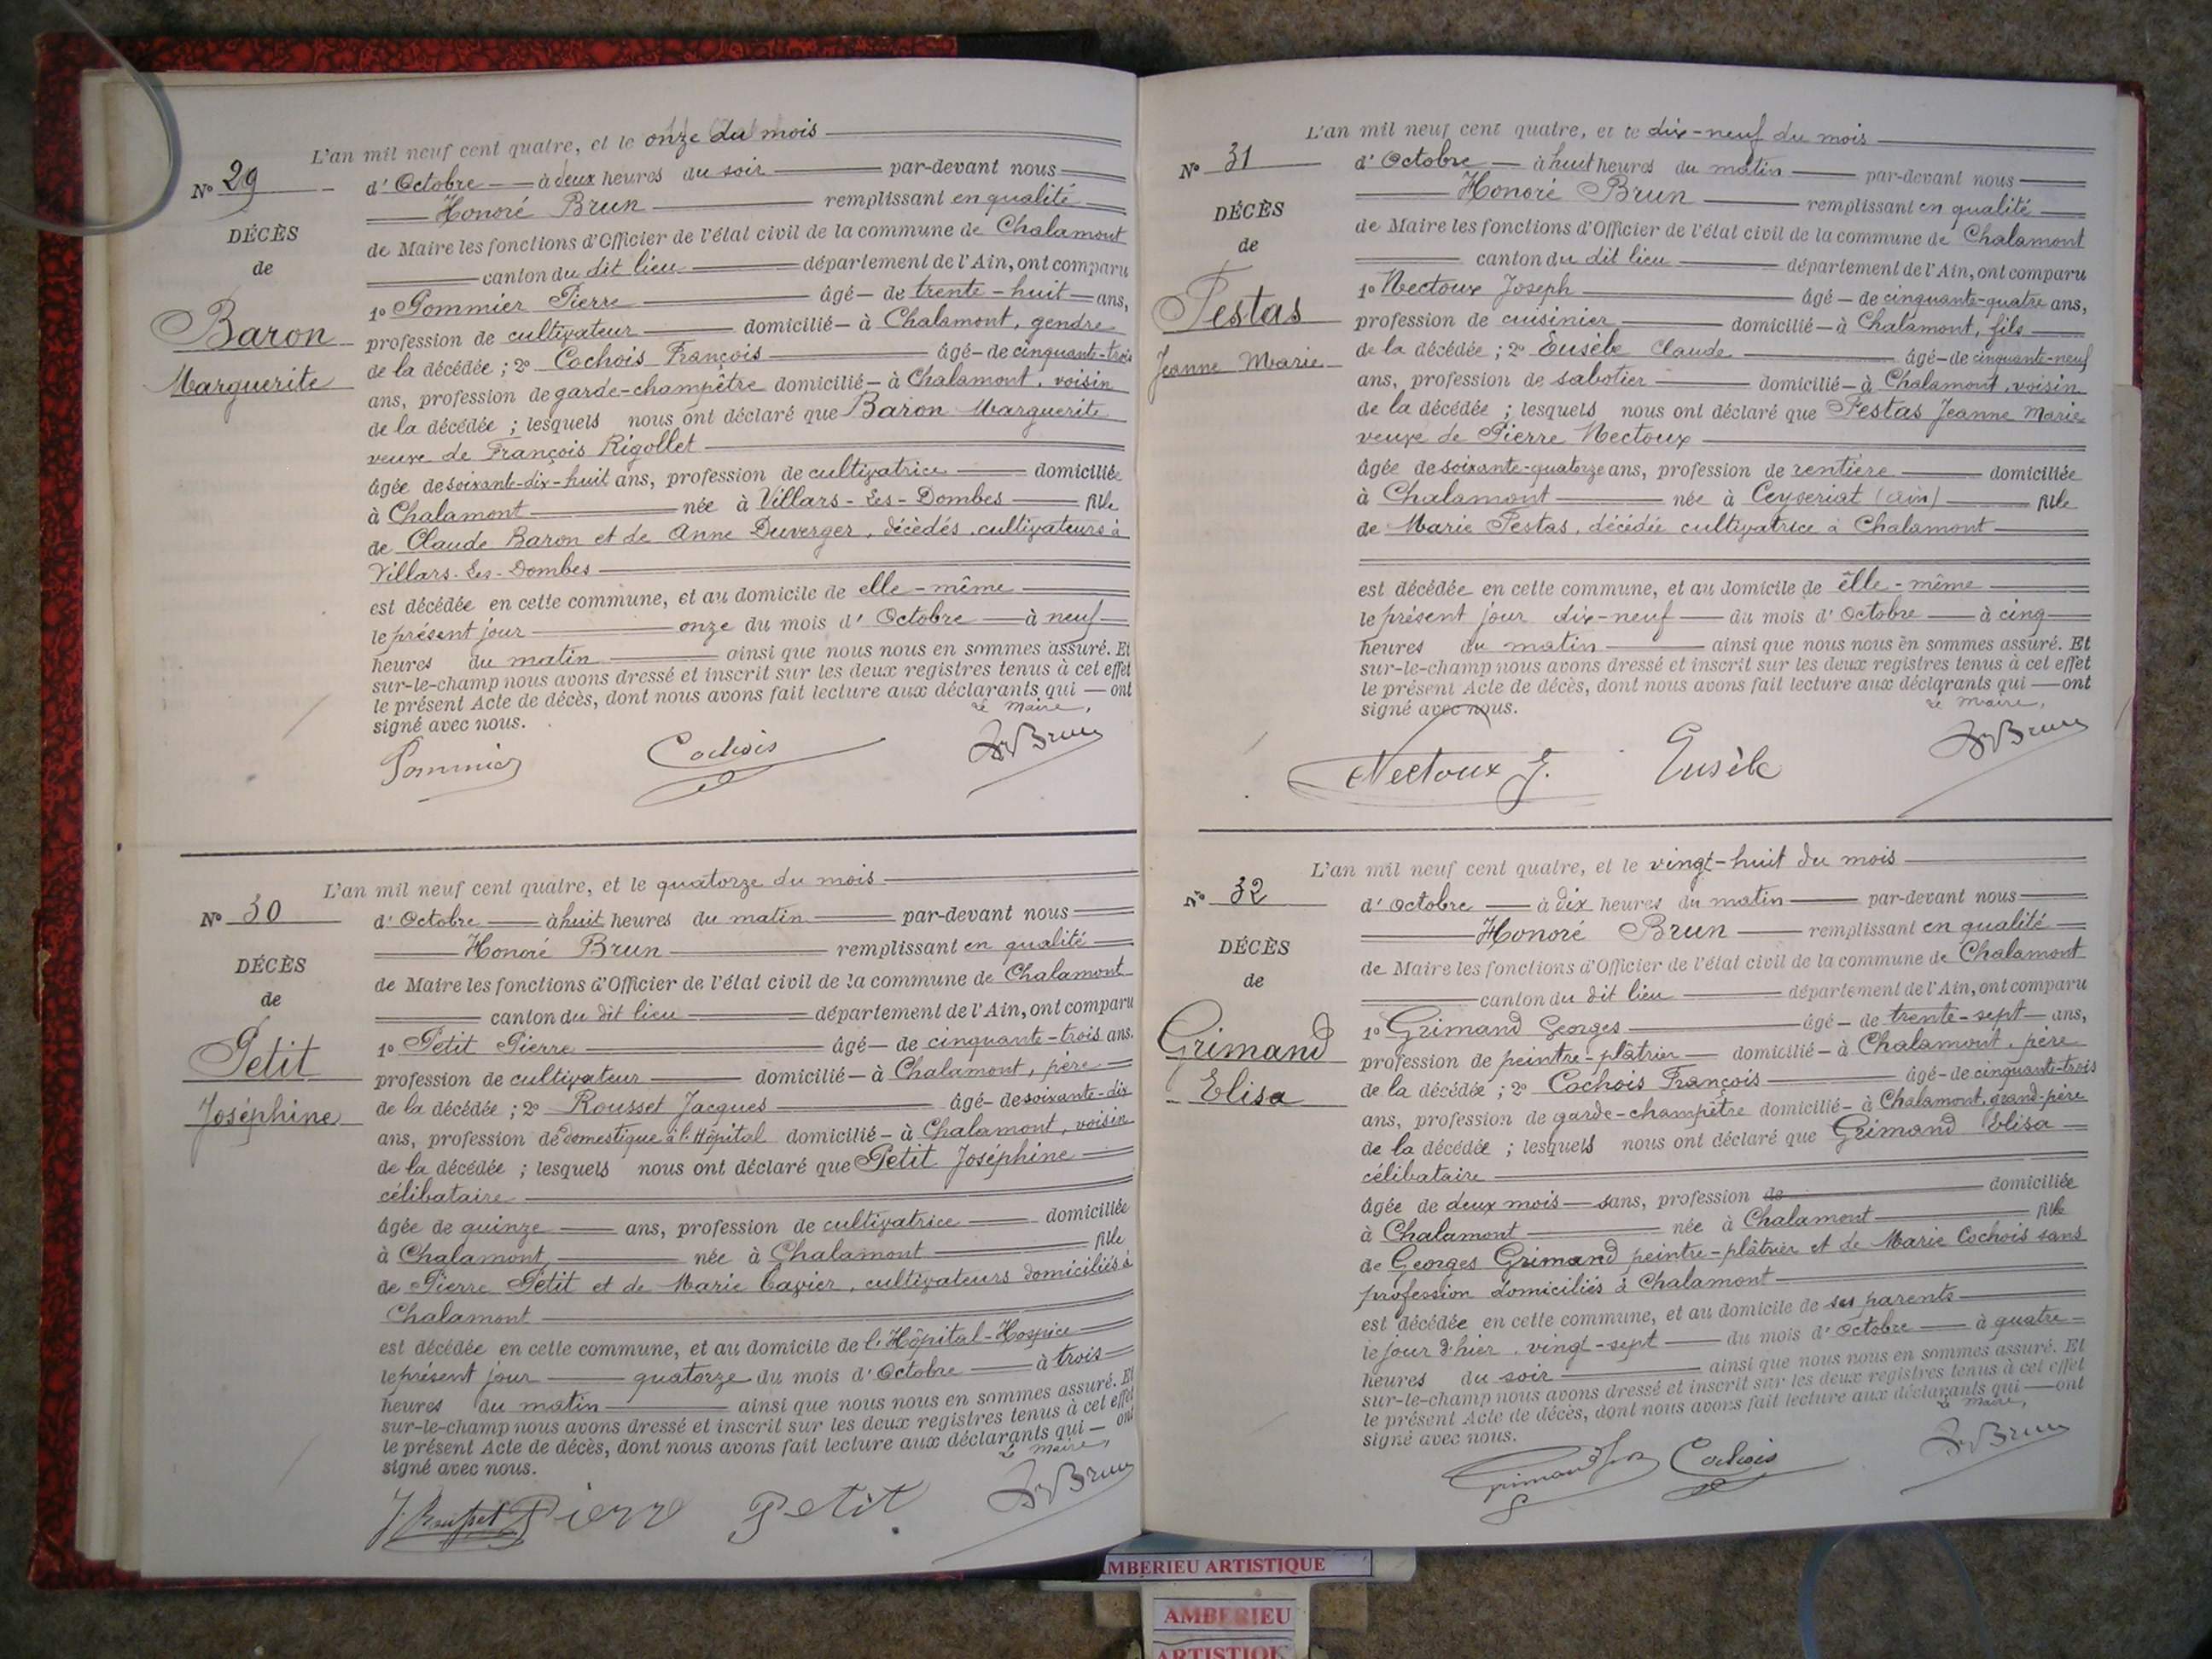 L'an mil neuf cent quatre, et le onze du mois
N° 29
d'Octobre à deux heures du soir par-devant nous
Honoré Brun remplissant en qualité
DÉCÈS
de Maire les fonctions d'Officier de l'état civil de la commune de Chalamont
de
canton du dit lieu département de l'Ain, ont comparu
1° Pommier Pierre âgé de trente-huit ans,
Baron
profession de cultivateur domicilié à Chalamont, gendre
de la décédée ; 2° Cochois François âgé de cinquante-trois
Marguerite
ans, profession de garde-champêtre domicilié à Chalamont, voisin
de la décédée ; lesquels nous ont déclaré que Baron Marguerite
veuve de François Rigollet
âgée de soixante-dix-huit ans, profession de cultivatrice domiciliée
à Chalamont née à Villars-Les-Dombes fille
de Claude Baron et de Anne Duverger, décédés, cultivateurs à
Villars-Les-Dombes
est décédée en cette commune, et au domicile de elle-même
le présent jour onze du mois d'Octobre à neuf
heures du matin ainsi que nous nous en sommes assuré. Et
sur-le-champ nous avons dressé et inscrit sur les deux registres tenus à cet effet
le présent Acte de décès, dont nous avons fait lecture aux déclarants qui ont
signé avec nous.
Le Maire,
Pommier Cochois Brun
L'an mil neuf cent quatre, et le quatorze du mois
N° 30
d'Octobre à huit heures du matin par-devant nous
Honoré Brun remplissant en qualité
DÉCÈS
de Maire les fonctions d'Officier de l'état civil de la commune de Chalamont
de
canton du dit lieu département de l'Ain, ont comparu
Petit
1° Petit Pierre âgé de cinquante-trois ans.
profession de cultivateur domicilié à Chalamont, père
Joséphine
de la décédée ; 2° Rousset Jacques âgé de soixante-dix
ans, profession de domestique à l'Hôpital domicilié à Chalamont, voisin
de la décédée ; lesquels nous ont déclaré que Petit Joséphine
célibataire
âgée de quinze ans, profession de cultivatrice domiciliée
à Chalamont née à Chalamont fille
de Pierre Petit et de Marie, cultivateurs domiciliés à
Chalamont
est décédée en cette commune, et au domicile de l'Hôpital-Hospice
le présent jour quatorze du mois d'Octobre à trois
heures du matin ainsi que nous nous en sommes assuré. Et
sur-le-champ nous avons dressé et inscrit sur les deux registres tenus à cet effet
le présent Acte de décès, dont nous avons fait lecture aux déclarants qui ont
signé avec nous.
Le Maire,
J. Rousset Pierre Petit Brun
L'an mil neuf cent quatre, et le dix-neuf du mois
N° 31
d'Octobre à huit heures du matin par-devant nous
Honoré Brun remplissant en qualité
DÉCÈS
de Maire les fonctions d'Officier de l'état civil de la commune de Chalamont
de
canton du dit lieu département de l'Ain, ont comparu
1° Nectoux Joseph âgé de cinquante-quatre ans,
Festas
profession de cuisinier domicilié à Chalamont, fils
Jeanne Marie
de la décédée ; 2° Eusèbe Claude âgé de cinquante-neuf
ans, profession de sabotier domicilié à Chalamont, voisin
de la décédée ; lesquels nous ont déclaré que Festas Jeanne Marie
veuve de Pierre Nectoux
âgée de soixante-quatorze ans, profession de rentière domiciliée
à Chalamont née à Ceyzeriat (Ain) fille
de Marie Festas, décédée cultivatrice à Chalamont
est décédée en cette commune, et au domicile de elle-même
le présent jour dix-neuf du mois d'Octobre à cinq
heures du matin ainsi que nous nous en sommes assuré. Et
sur-le-champ nous avons dressé et inscrit sur les deux registres tenus à cet effet
le présent Acte de décès, dont nous avons fait lecture aux déclarants qui ont
signé avec nous.
Le Maire,
Nectoux J. Eusèbe Brun
L'an mil neuf cent quatre, et le vingt-huit du mois
N° 32
d'Octobre à dix heures du matin par-devant nous
Honoré Brun remplissant en qualité
DÉCÈS
de Maire les fonctions d'Officier de l'état civil de la commune de Chalamont
de
canton du dit lieu département de l'Ain, ont comparu
1° Grimand Georges âgé de trente-sept ans,
Grimand
profession de peintre-plâtrier domicilié à Chalamont, père
Elisa
de la décédée ; 2° Cochois François âgé de cinquante-trois
ans, profession de garde-champêtre domicilié à Chalamont, grand-père
de la décédée ; lesquels nous ont déclaré que Grimand Elisa
célibataire
âgée de deux mois sans, profession de domiciliée
à Chalamont née à Chalamont fille
de Georges Grimand peintre-plâtrier et de Marie Cochois sans
profession domiciliés à Chalamont
est décédée en cette commune, et au domicile de ses parents
le jour d'hier, vingt-sept du mois d'Octobre à quatre
heures du soir ainsi que nous nous en sommes assuré. Et
sur-le-champ nous avons dressé et inscrit sur les deux registres tenus à cet effet
le présent Acte de décès, dont nous avons fait lecture aux déclarants qui ont
signé avec nous.
Le Maire,
Grimand Cochois Brun
AMBERIEU ARTISTIQUE
AMBERIEU
ARTISTIQ